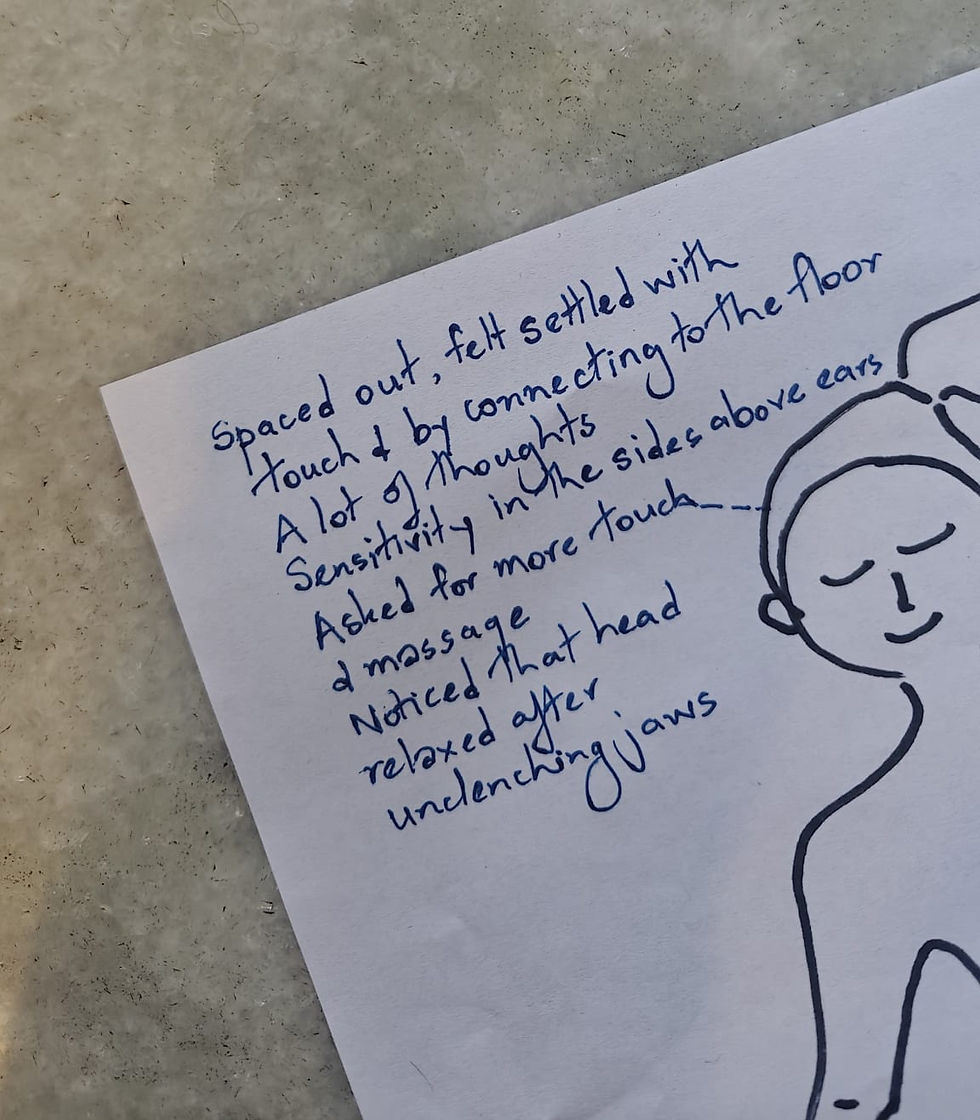 Spaced out, felt settled with
touch & by connecting to the floor
A lot of thoughts
Sensitivity in the sides above ears
Asked for more touch
& massage
Noticed that head
relaxed after
unclenching jaws